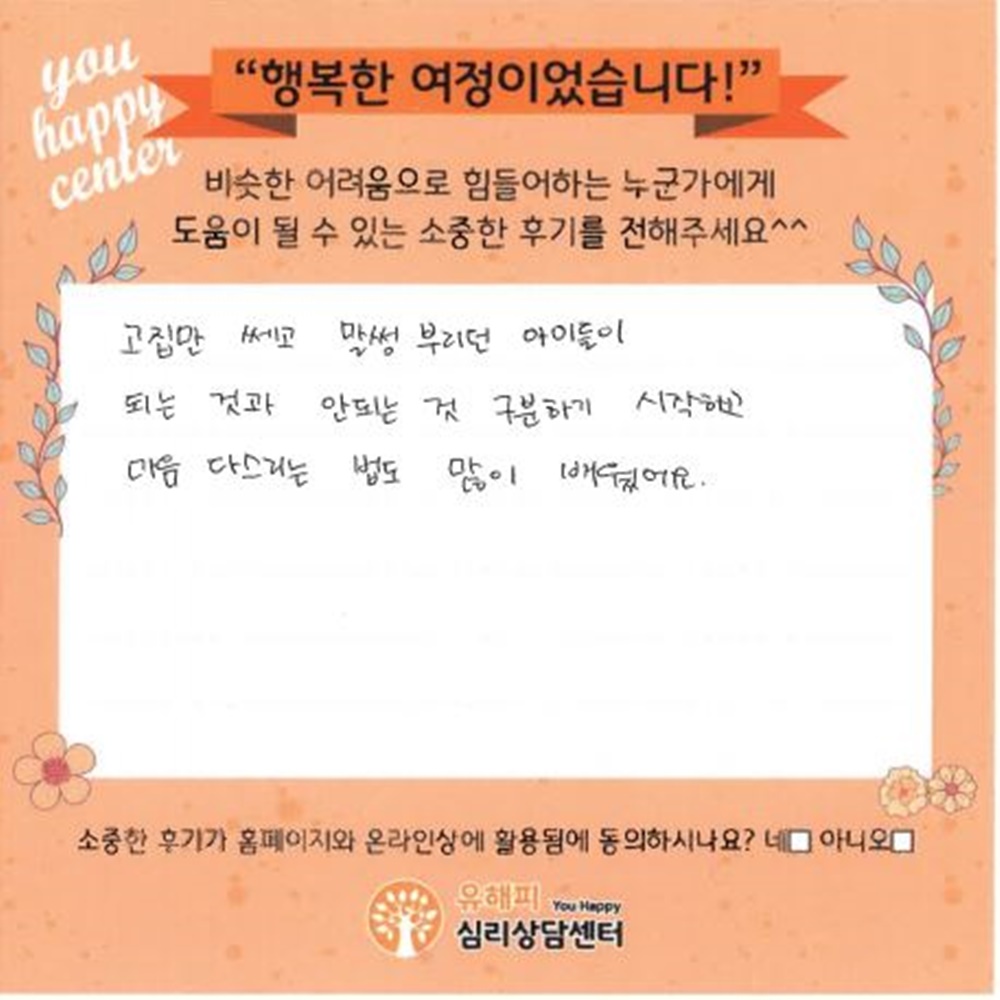 you
happy
center
“행복한 여정이었습니다!”
비슷한 어려움으로 힘들어하는 누군가에게
도움이 될 수 있는 소중한 후기를 전해주세요^^
고집만 쎄고 말썽 부리던 아이들이
되는 것과 안되는 것 구분하기 시작하고
마음 다스리는 법도 많이 배웠어요.
소중한 후기가 홈페이지와 온라인상에 활용됨에 동의하시나요? 네□ 아니오□
유해피 You Happy
심리상담센터